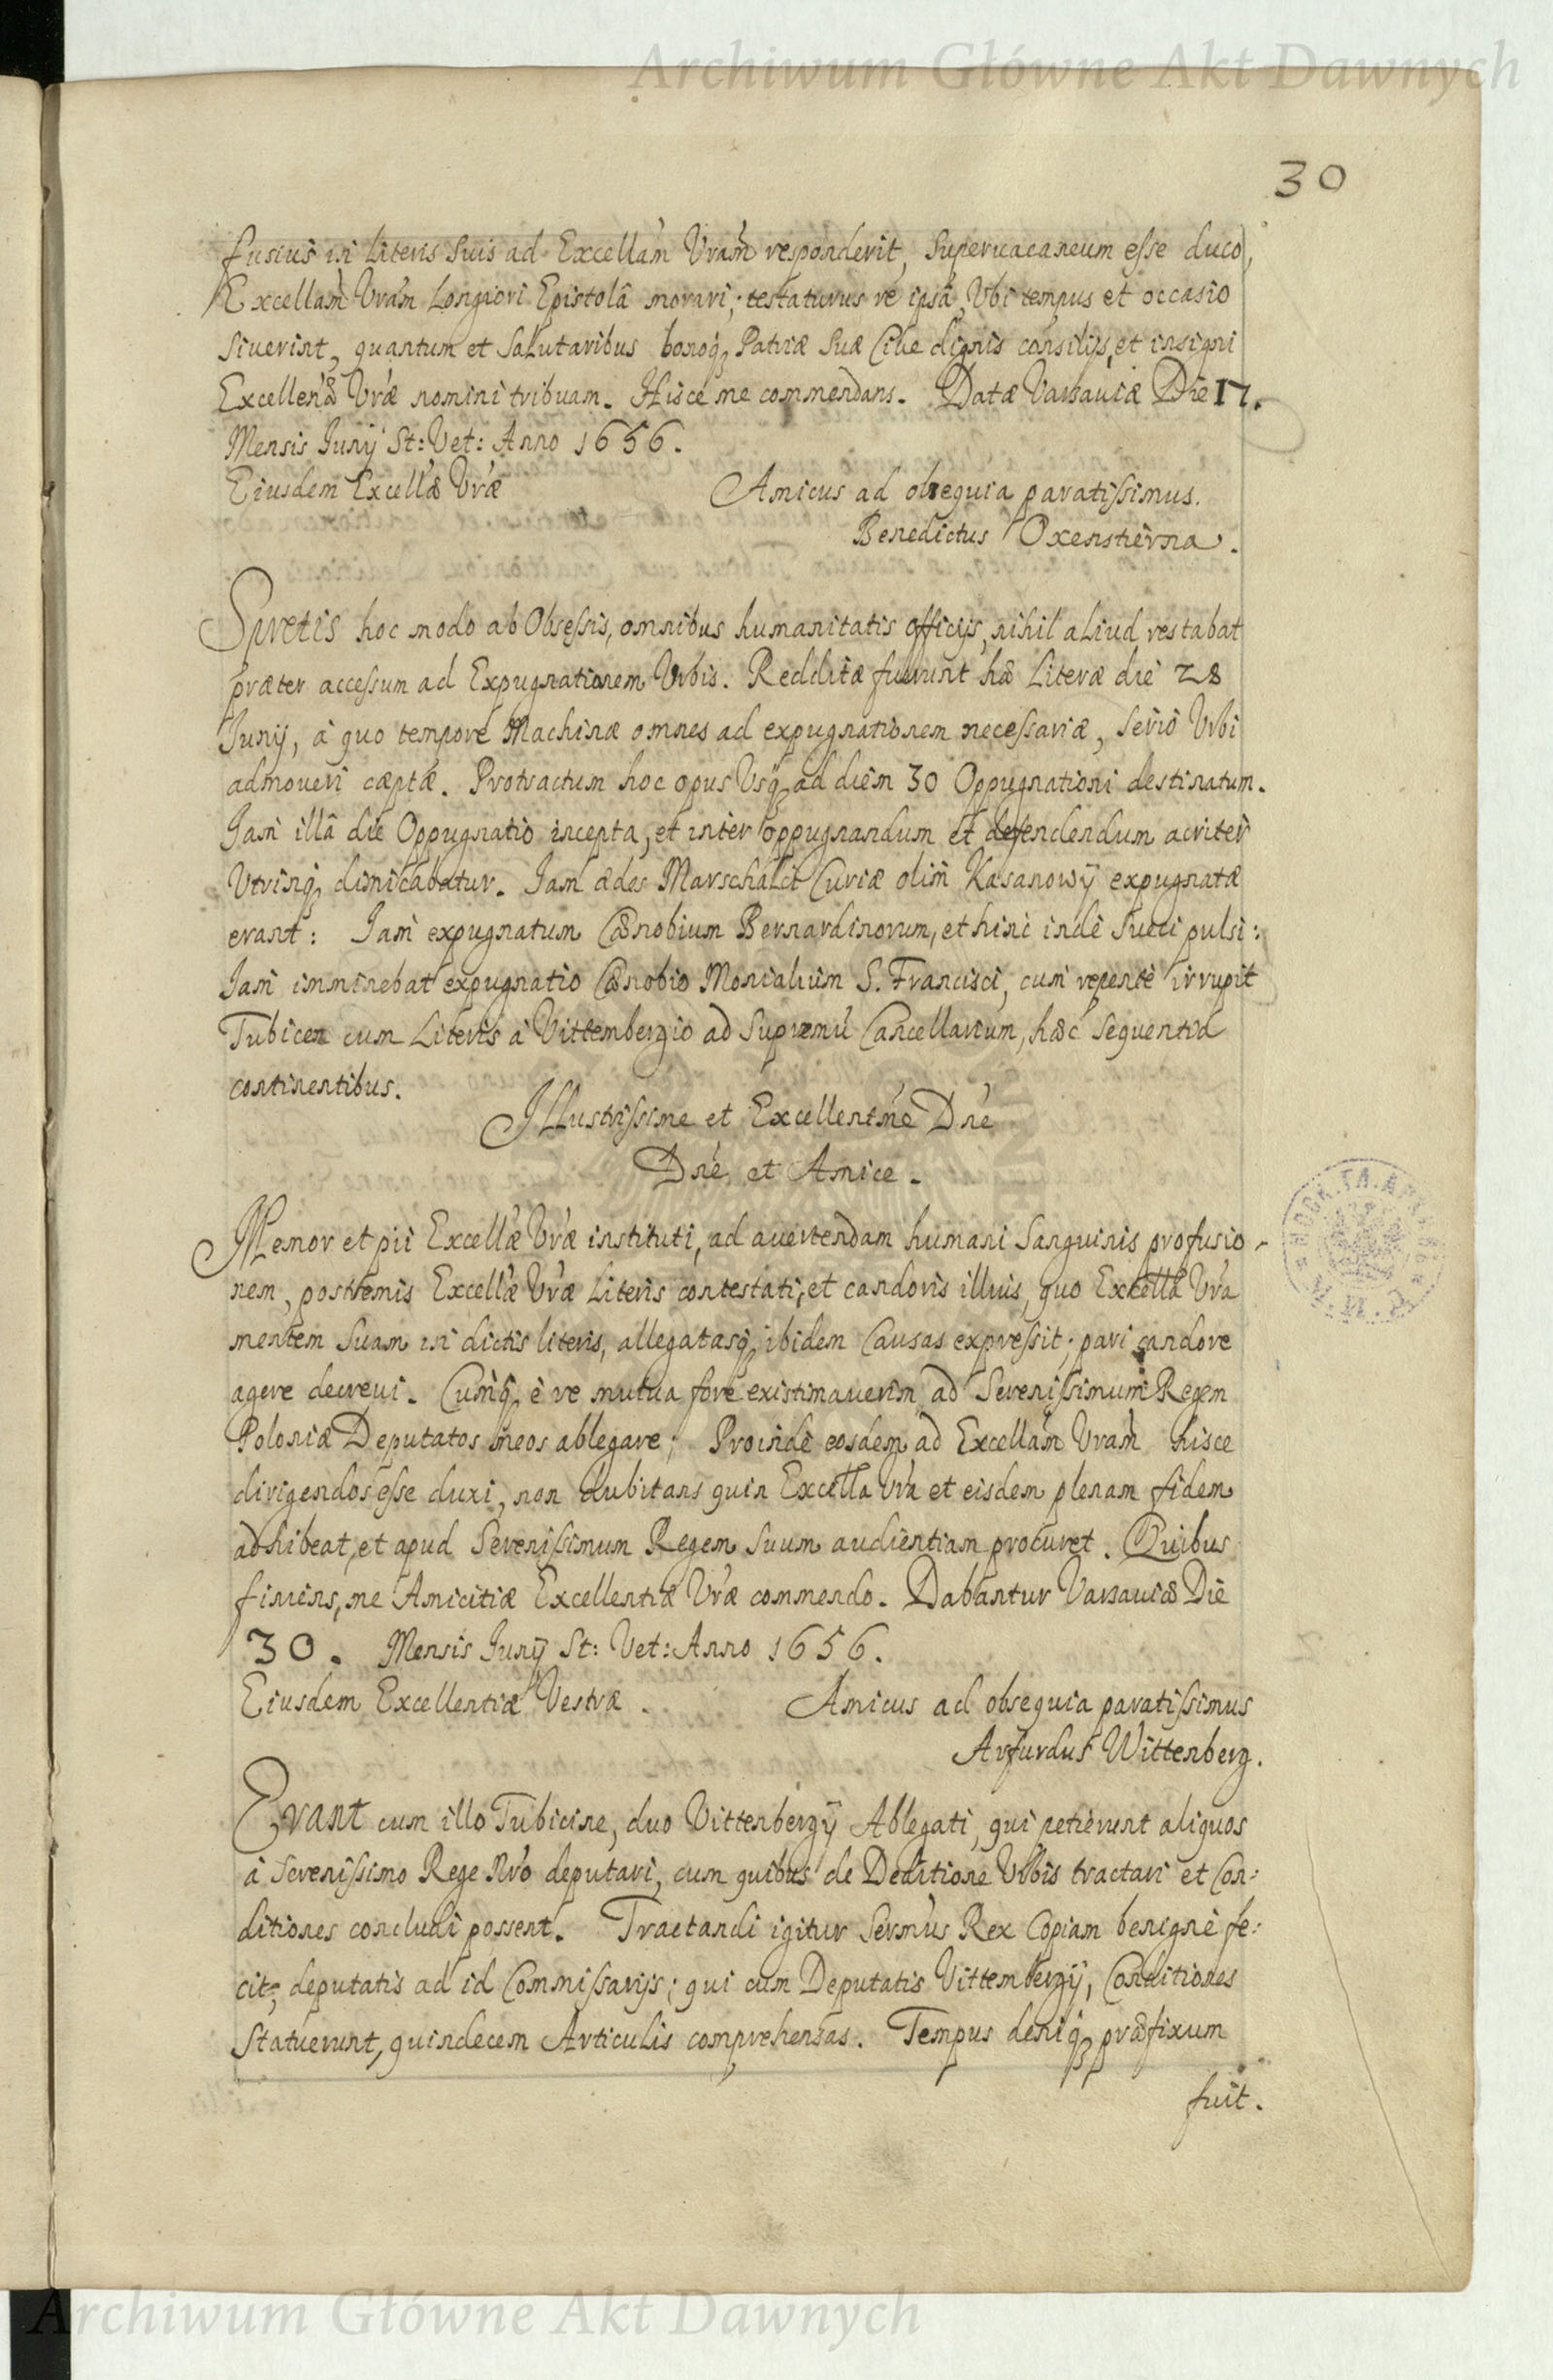 Archiwum Główne Akt Dawnych
30
fusius in Literis Suis ad Excellam Vram responderit, Superuacaneum esse duco,
Excellam Vram Longiori Epistolâ morari; testaturus re ipsâ, Vbi tempus et occasio
Siuerint, quantum et Salutaribus bonoq₃ Patriæ Suæ Ciue dignis consilijs, et insigni
Excellen̄æ Vræ nomini tribuam. Hisce me commendans. Datæ Varsauiæ Die 17.
Mensis Junÿ St: Vet: Anno 1656.
Eiusdem Excellæ Vræ Amicus ad obsequia paratissimus.
Benedictus Oxenstierna.
Spretis hoc modo ab Obsessis, omnibus humanitatis officijs, nihil aliud restabat
præter accessum ad Expugnationem Vrbis. Redditæ fuerunt hæ Literæ die 28
Junÿ, à quo tempore Machinæ omnes ad expugnationem necessariæ, Seriò Vrbi
admoueri cæptæ. Protractum hoc opus Vsq₃ ad diem 30 Oppugnationi destinatum.
Jam illâ die Oppugnatio incepta, et inter oppugnandum et defendendum acriter
Vtrinq₃ dimicabatur. Jam ædes Marschalci Curiæ olim Kasanowÿ expugnatæ
erant: Jam expugnatum Cænobium Bernardinorum, et hinc inde Sueci pulsi:
Jam imminebat expugnatio Cænobio Monialium S. Francisci, cum repente irrupit
Tubicen cum Literis à Vittembergio ad Supremū Cancellarium, hæc Sequentia
continentibus.
Illustrissime et Excellentme Dne
Dne et Amice.
Memor et pii Excellæ Vræ instituti, ad auertendam humani Sanguinis profusio-
nem, postremis Excellæ Vræ Literis contestati, et candoris illius, quo Excella Vra
mentem Suam in dictis literis, allegatasq₃ ibidem Causas expressit; pari candore
agere decreui. Cumq₃ è re mutua fore existimauerim ad Serenissimum Regem
Poloniæ Deputatos meos ablegare; Proinde eosdem ad Excellam Vram hisce
dirigendos esse duxi, non dubitans quin Excella Vra et eisdem plenam fidem
adhibeat, et apud Serenissimum Regem Suum audientiam procuret. Quibus
finiens, me Amicitiæ Excellentiæ Vræ commendo. Dabantur Varsauiæ Die
30. Mensis Junÿ St: Vet: Anno 1656.
Eiusdem Excellentiæ Vestræ. Amicus ad obsequia paratissimus
Arfurdus Wittenberg.
Erant cum illo Tubicine, duo Vittenbergÿ Ablegati, qui petierunt aliquos
à Serenissimo Rege Nro deputari, cum quibus de Deditione Vrbis tractari et Con:
ditiones concludi possent. Tractandi igitur Sermus Rex Copiam benignè fe:
cit, deputatis ad id Commissarijs; qui cum Deputatis Vittembergÿ, Conditiones
Statuerunt, quindecem Articulis comprehensas. Tempus deniq₃ præfixum
fuit.
Archiwum Główne Akt Dawnych